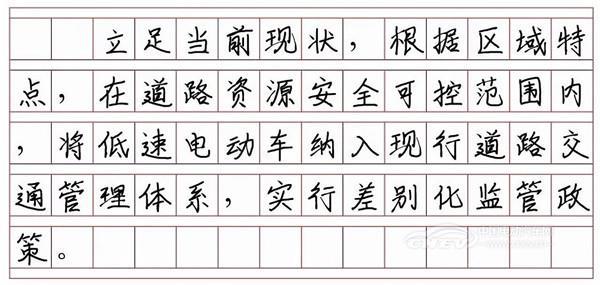 立足当前现状，根据区域特
点，在道路资源安全可控范围内
，将低速电动车纳入现行道路交
通管理体系，实行差别化监管政
策。
中国电动汽车网